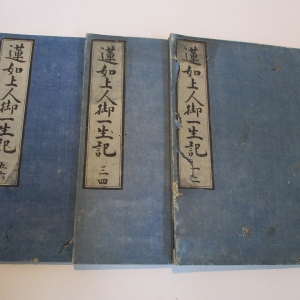 蓮如上人御一生記 一二
蓮如上人御一生記 三四
蓮如上人御一生記 五六